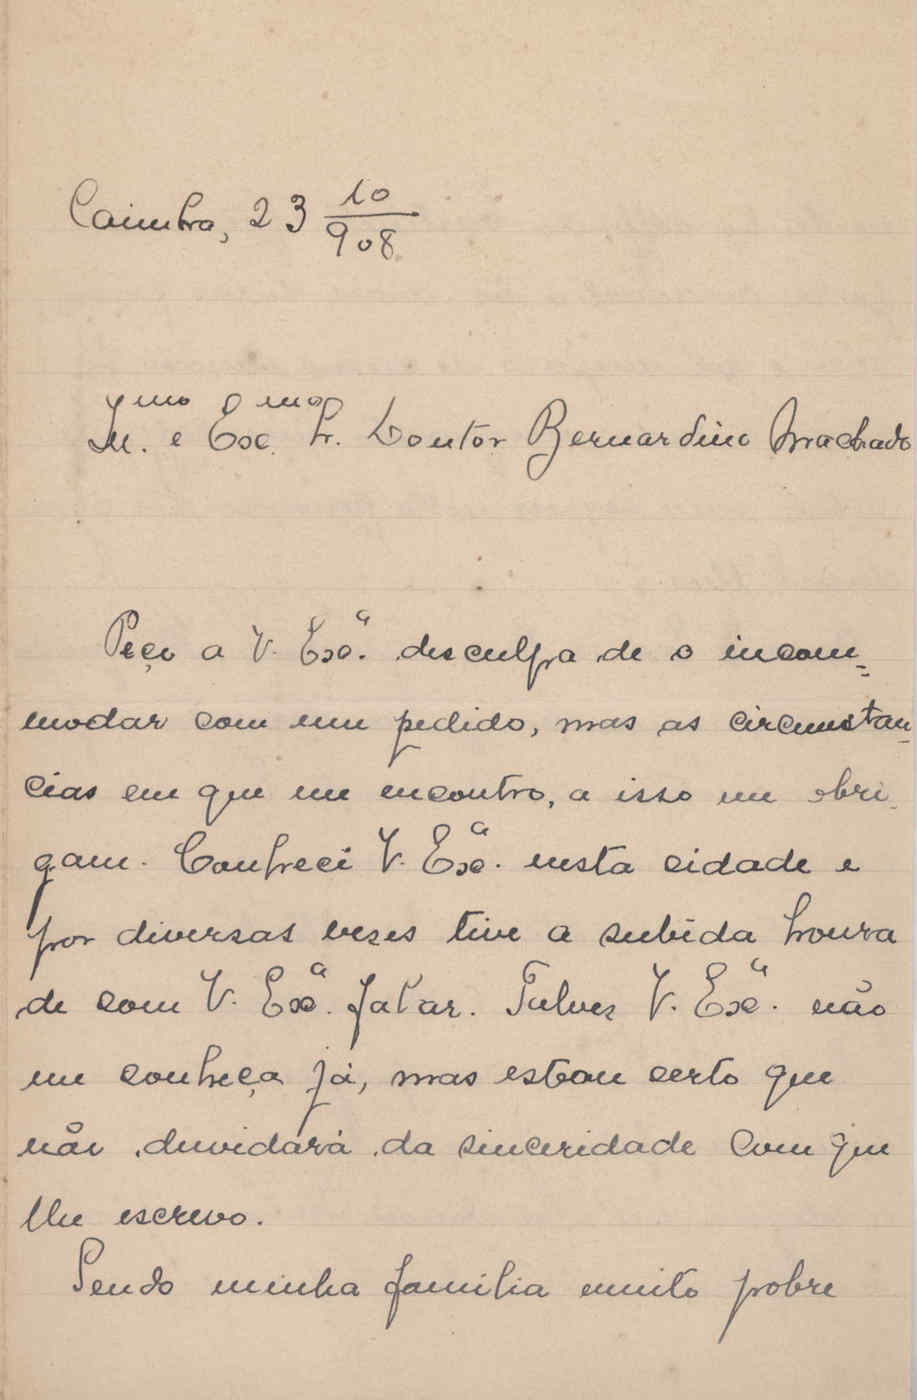 Coimbra, 23 10/908
Ill.mo e Exc.mo Sr. Doutor Bernardino Machado
Peço a V. Exc.ª desculpa de o incom-
modar com um pedido, mas as circumstan-
cias em que me encontro, a isso me obri-
gam. Conheci V. Exc.ª nesta cidade e
por diversas vezes tive a subida honra
de com V. Exc.ª fallar. Talvez V. Exc.ª não
me conheça já, mas estou certo que
não duvidará da sinceridade com que
lhe escrevo.
Sendo minha familia muito pobre